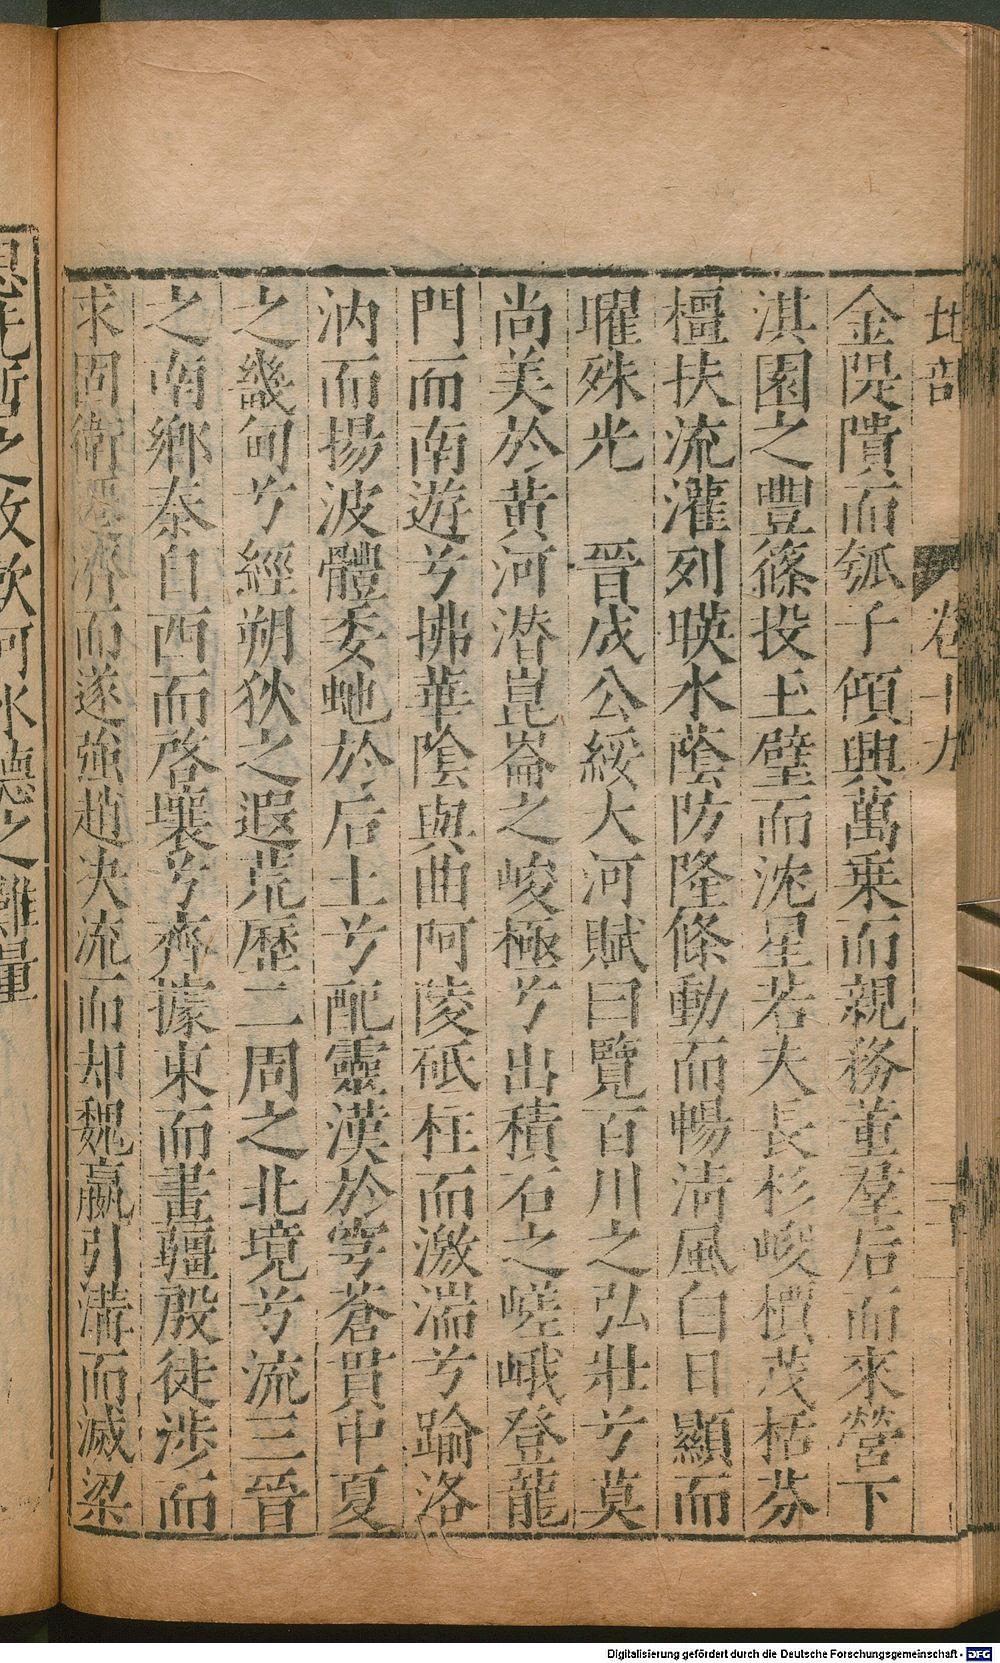 地部 卷十九 二
金隄隤而瓠子傾興萬乗而親務董羣后而來營下
淇園之豐篠投玉璧而沈星若夫長杉峻檟茂栝芬
橿扶流灌列暎水蔭防隆條動而暢淸風白日顯而
曜殊光 晉成公綏大河賦曰覽百川之弘壯兮莫
尚美於黄河潜崑崙之峻極兮出積石之嵯峨登龍
門而南遊兮拂華陰與曲阿陵砥柱而激湍兮踰洛
汭而揚波體委虵於后土兮配靈漢於穹蒼貫中夏
之畿甸兮經朔狄之遐荒歷二周之北境兮流三晉
之南鄉秦自西而啓壤兮齊據東而畫疆殷徒涉而
求固衛遷濟而遂強趙决流而却魏嬴引溝而滅梁
思先哲之攸歎何水德之難量
Digitalisierung gefördert durch die Deutsche Forschungsgemeinschaft - DFG